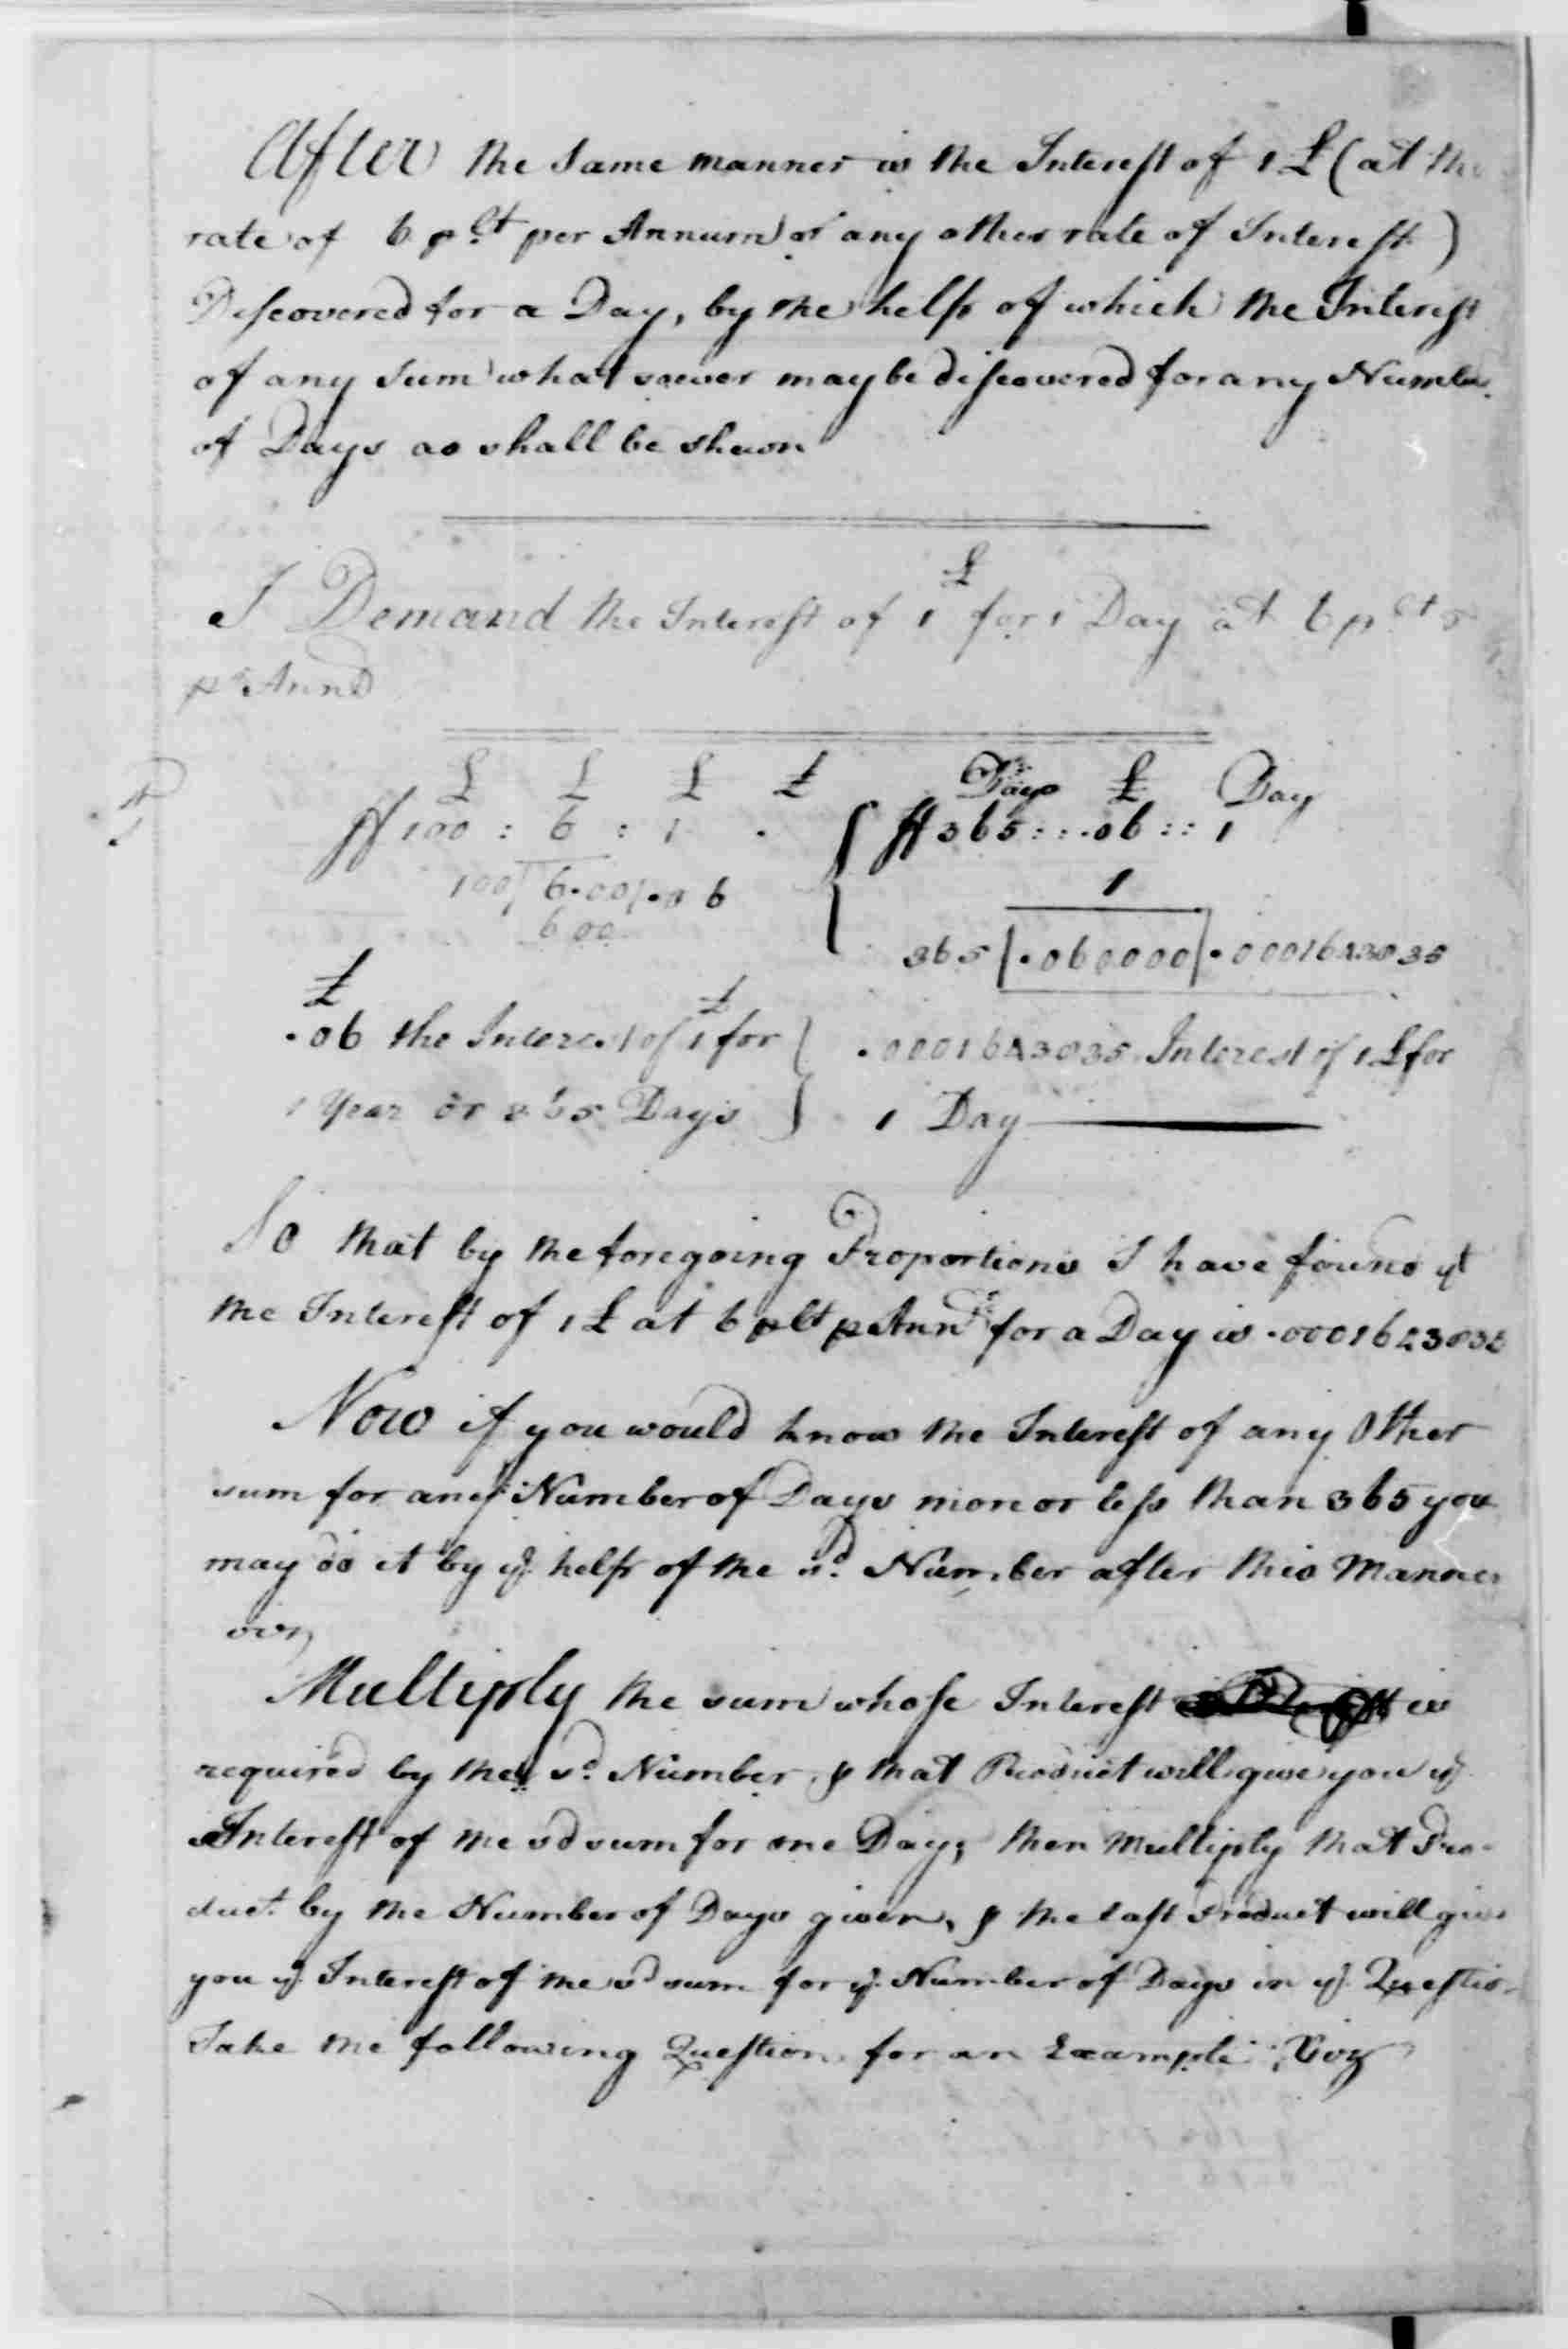 After the same manner is the Interest of 1 £ (at the
rate of 6 p Ct per Annum or any other rate of Interest)
Discovered for a Day, by the help of which the Interest
of any sum what soever may be discovered for any Number
of Days as shall be shewn
£
I Demand the Interest of 1 for 1 Day at 6 p Ct
pr Annd
£ £ £ £ Days £ Day
If 100 : 6 : 1 . If 365 : : .06 : : 1
1
100) 6.00 (.06
600
365 | .060000 | .0001643835
£ £
.06 the Interest of 1 for .0001643835 Interest of 1 £ for
1 Year or 365 Days 1 Day
So that by the foregoing Proportions I have found yt
the Interest of 1 £ at 6 p Ct p Annd for a Day is .0001643835
Now if you would know the Interest of any Other
sum for any Number of Days more or less than 365 you
may do it by ye help of the sd Number after this Manner
Multiply the sum whose Interest is
required by the sd Number, & that Product will give you ye
Interest of the sd sum for one Day; then Multiply that Pro-
duct by the Number of Days given, & the last Product will give
you ye Interest of the sd sum for ye Number of Days in ye Question
Take the following Question for an Example Viz